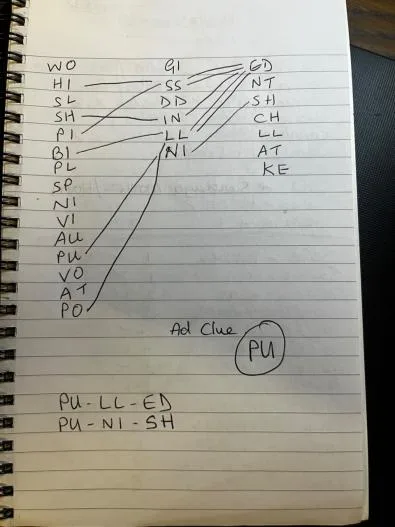 WO GI ED
HI SS NT
SL DD SH
SH IN CH
PI LL LL
BI NI AT
PL KE
SP
NI
VI
AU
PU
VO
AT
PO
Ad Clue
PU
PU-LL-ED
PU-NI-SH